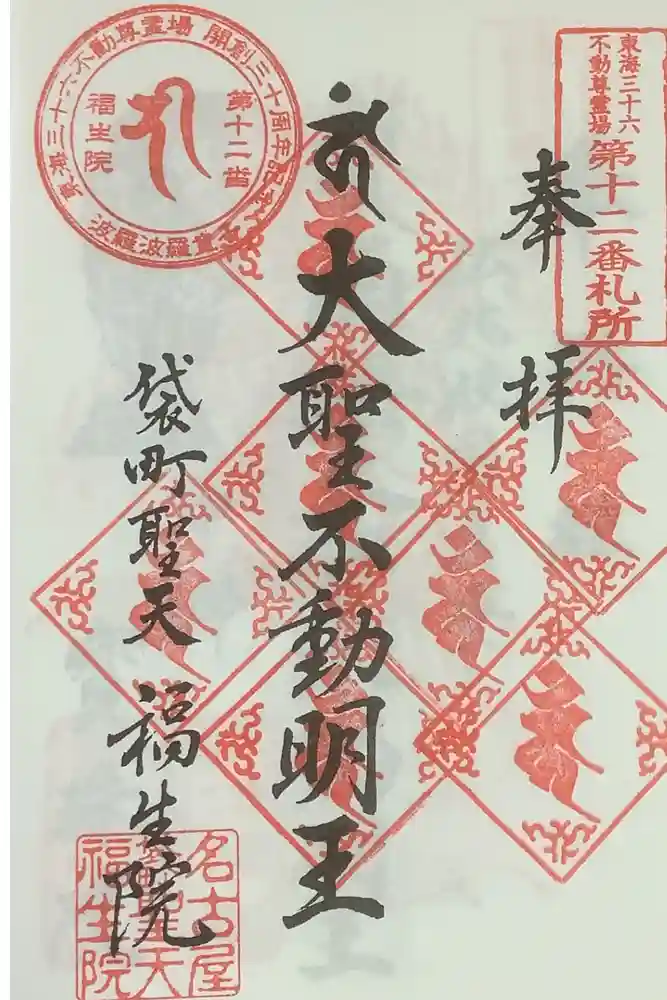 東海三十六
不動尊霊場
第十二番札所
奉拝
大聖不動明王
袋町聖天 福生院
東海三十六不動尊霊場 開創三十周年記念
第十二番
福生院
名古屋
聖天
福生院